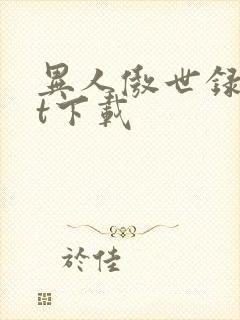 異人傲世録
t下載
於佳